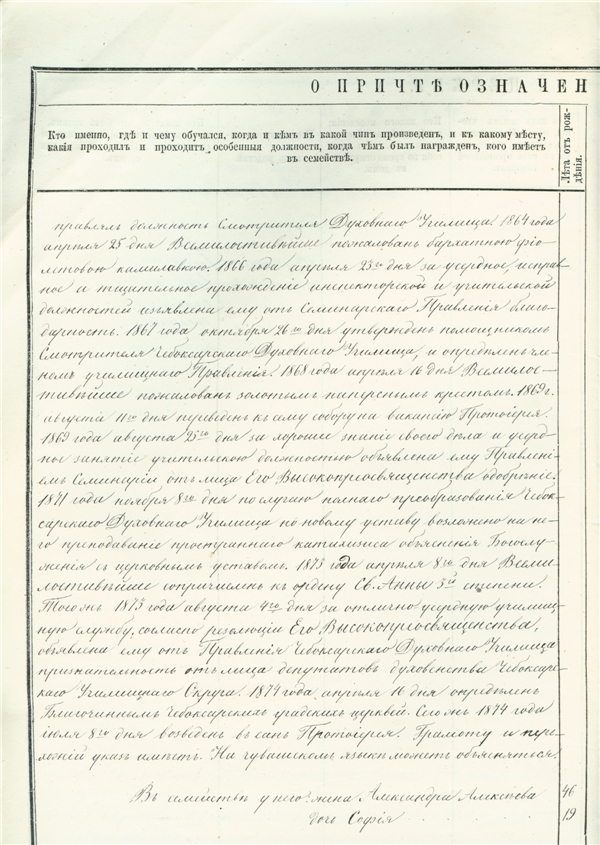 О ПРИЧТѢ ОЗНАЧЕН
Кто именно, гдѣ и чему обучался, когда и кѣмъ въ какой чинъ произведенъ, и къ какому мѣсту,
какія проходилъ и проходитъ особенныя должности, когда чѣмъ былъ награжденъ, кого имѣетъ
въ семействѣ.
Лѣта отъ рож-
денія.
правлялъ должность Смотрителя Духовнаго Училища. 1864 года
апрѣля 25 дня Всемилостивѣйше пожалованъ бархатною фіо-
летовою камилавкою. 1866 года апрѣля 23го дня за усердное, исправ-
ное и тщательное прохожденіе инспекторской и учительской
должностей изъявлена ему отъ Семинарскаго Правленія благо-
дарность. 1867 года октября 26го дня утвержденъ помощникомъ
Смотрителя Чебоксарскаго Духовнаго Училища, и опредѣленъ чле-
номъ училищнаго Правленія. 1868 года апрѣля 16 дня Всемило-
стивѣйше пожалованъ золотымъ наперснымъ крестомъ. 1869 г.
августа 11го дня переведенъ къ сему собору на вакансію Протоіерея.
1869 года августа 25го дня за хорошее знаніе своего дѣла и усерд-
ное занятіе учительскою должностью объявлена ему Правлені-
емъ Семинаріи отъ лица Его Высокопреосвященства одобреніе.
1871 года ноября 8го дня по случаю полнаго преобразованія Чебок-
сарскаго Духовнаго Училища по новому уставу возложено на не-
го преподаваніе пространнаго катихизиса объясненія Богослу-
женія съ церковнымъ уставомъ. 1873 года апрѣля 8го дня Всеми-
лостивѣйше сопричисленъ къ ордену Св. Анны 3й степени.
Тогожъ 1873 года августа 4го дня за отлично усердную училищ-
ную службу, согласно резолюціи Его Высокопреосвященства,
объявлена ему отъ Правленія Чебоксарскаго Духовнаго Училища
признательность отъ лица депутатовъ духовенства Чебоксар-
скаго Училищнаго Округа. 1874 года апрѣля 16 дня опредѣленъ
Благочиннымъ Чебоксарскихъ градскихъ церквей. Сегожъ 1874 года
іюля 8го дня возведенъ въ санъ Протоіерея. Грамоту и пере-
хожій указъ имѣетъ. На чувашскомъ языкѣ можетъ объясняться.
Въ семействѣ у него: жена Александра Алексѣева 46
дочь Софія 19